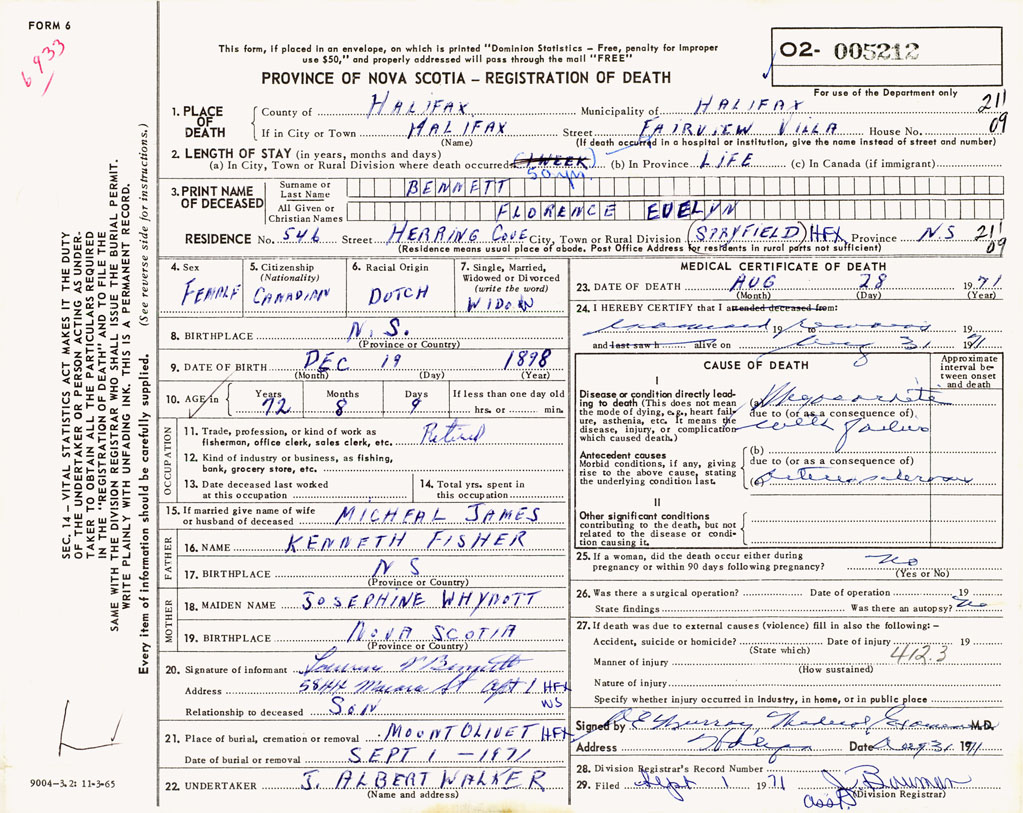 FORM 6
6933
This form, if placed in an envelope, on which is printed "Dominion Statistics – Free, penalty for improper
use $50," and properly addressed will pass through the mail "FREE"
PROVINCE OF NOVA SCOTIA – REGISTRATION OF DEATH
O2- 005212
For use of the Department only
1. PLACE OF DEATH
County of HALIFAX Municipality of HALIFAX 211
If in City or Town HALIFAX Street FAIRVIEW VILLA House No. 09
(Name) (If death occurred in a hospital or institution, give the name instead of street and number)
2. LENGTH OF STAY (in years, months and days)
(a) In City, Town or Rural Division where death occurred 1 WEEK (b) In Province LIFE (c) In Canada (if immigrant)
50 yrs
3. PRINT NAME OF DECEASED
Surname or Last Name BENNETT
All Given or Christian Names FLORENCE EVELYN
RESIDENCE No. 546 Street HERRING COVE City, Town or Rural Division (SPRYFIELD) HFX Province NS 211
09
(Residence means usual place of abode. Post Office Address for residents in rural parts not sufficient)
4. Sex FEMALE
5. Citizenship (Nationality) CANADIAN
6. Racial Origin DUTCH
7. Single, Married, Widowed or Divorced (write the word) WIDOW
8. BIRTHPLACE N.S.
(Province or Country)
9. DATE OF BIRTH DEC 19 1898
(Month) (Day) (Year)
10. AGE in Years Months Days If less than one day old
72 8 9 hrs. or min.
OCCUPATION
11. Trade, profession, or kind of work as Retired
fisherman, office clerk, sales clerk, etc.
12. Kind of industry or business, as fishing,
bank, grocery store, etc.
13. Date deceased last worked at this occupation
14. Total yrs. spent in this occupation
15. If married give name of wife or husband of deceased MICHEAL JAMES
FATHER
16. NAME KENNETH FISHER
17. BIRTHPLACE N S
(Province or Country)
MOTHER
18. MAIDEN NAME JOSEPHINE WHYNOTT
19. BIRTHPLACE NOVA SCOTIA
(Province or Country)
20. Signature of informant Bennett
Address 5844 Macara St Apt 1 HFX
NS
Relationship to deceased SON
21. Place of burial, cremation or removal MOUNT OLIVET HFX
Date of burial or removal SEPT 1 – 1971
22. UNDERTAKER J. ALBERT WALKER
(Name and address)
MEDICAL CERTIFICATE OF DEATH
23. DATE OF DEATH AUG 28 1971
(Month) (Day) (Year)
24. I HEREBY CERTIFY that I attended deceased from:
19 to 19
and last saw h alive on Aug 31 1971
CAUSE OF DEATH
Approximate interval between onset and death
I
Disease or condition directly leading to death (This does not mean the mode of dying, e.g., heart failure, asthenia, etc. It means the disease, injury, or complication which caused death.)
(a)
due to (or as a consequence of)
with failure
Antecedent causes
Morbid conditions, if any, giving rise to the above cause, stating the underlying condition last.
(b)
due to (or as a consequence of)
(c)
II
Other significant conditions
contributing to the death, but not related to the disease or condition causing it.
25. If a woman, did the death occur either during
pregnancy or within 90 days following pregnancy? No
(Yes or No)
26. Was there a surgical operation? Date of operation 19
State findings Was there an autopsy? No
27. If death was due to external causes (violence) fill in also the following: –
Accident, suicide or homicide? Date of injury 19
(State which) 412.3
Manner of injury
(How sustained)
Nature of injury
Specify whether injury occurred in Industry, in home, or in public place
Signed by Murray, Medical Examiner M.D.
Address Halifax Date Aug 31 1971
28. Division Registrar's Record Number
29. Filed Sept 1 1971 Bauman
asst (Division Registrar)
SEC. 14 – VITAL STATISTICS ACT MAKES IT THE DUTY
OF THE UNDERTAKER OR PERSON ACTING AS UNDER-
TAKER TO OBTAIN ALL THE PARTICULARS REQUIRED
IN THE "REGISTRATION OF DEATH" AND TO FILE THE
SAME WITH THE DIVISION REGISTRAR WHO SHALL ISSUE THE BURIAL PERMIT.
WRITE PLAINLY WITH UNFADING INK. THIS IS A PERMANENT RECORD.
Every item of information should be carefully supplied. (See reverse side for instructions.)
9004–3.2: 11-3-65